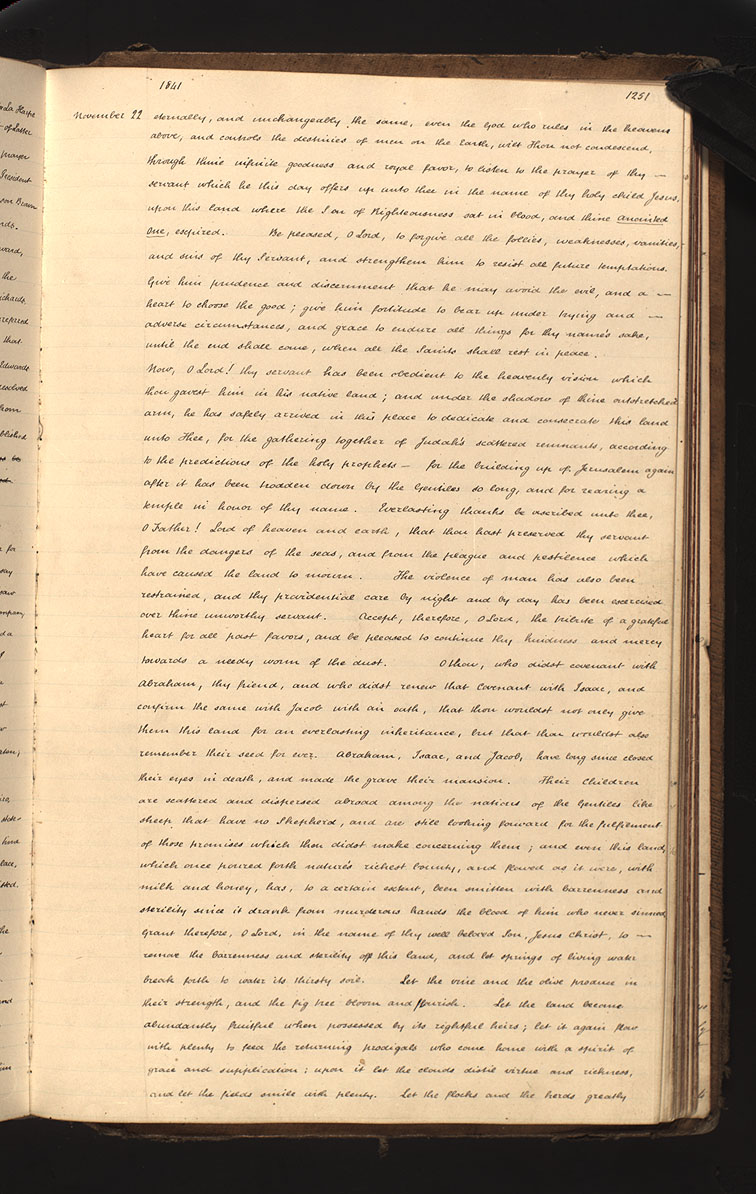 1841
1251
November 22 eternally, and unchangeably the same, even the God who rules in the heavens
above, and controls the destinies of men on the Earth, wilt Thou not condescend,
through thine infinite goodness and royal favor, to listen to the prayer of thy —
servant which he this day offers up unto thee in the name of thy holy child Jesus,
upon this land where the Son of Righteousness sat in blood, and thine anointed
One, expired. Be pleased, O Lord, to forgive all the follies, weaknesses, vanities,
and sins of thy Servant, and strengthen him to resist all future temptations.
Give him prudence and discernment that he may avoid the evil, and a —
heart to choose the good; give him fortitude to bear up under trying and —
adverse circumstances, and grace to endure all things for thy name's sake,
until the end shall come, when all the Saints shall rest in peace.
Now, O Lord! thy servant has been obedient to the heavenly vision which
thou gavest him in his native land; and under the shadow of thine outstretched
arm, he has safely arrived in this place to dedicate and consecrate this land
unto Thee, for the gathering together of Judah's scattered remnants, according
to the predictions of the holy prophets — for the building up of Jerusalem again
after it has been trodden down by the Gentiles so long, and for rearing a
temple in honor of thy name. Everlasting thanks be ascribed unto thee,
O Father! Lord of heaven and earth, that thou hast preserved thy servant
from the dangers of the seas, and from the plague and pestilence which
have caused the land to mourn. The violence of man has also been
restrained, and thy providential care by night and by day has been exercised
over thine unworthy servant. Accept, therefore, O Lord, the tribute of a grateful
heart for all past favors, and be pleased to continue thy kindness and mercy
towards a needy worm of the dust. O thou, who didst covenant with
Abraham, thy friend, and who didst renew that Covenant with Isaac, and
confirm the same with Jacob with an oath, that thou wouldst not only give
them this land for an everlasting inheritance, but that thou wouldst also
remember their seed for ever. Abraham, Isaac, and Jacob, have long since closed
their eyes in death, and made the grave their mansion. Their Children
are scattered and dispersed abroad among the nations of the Gentiles like
sheep that have no Shepherd, and are still looking forward for the fulfilment
of those promises which thou didst make concerning them; and even this land,
which once poured forth nature's richest bounty, and flowed as it were, with
milk and honey, has, to a certain extent, been smitten with barrenness and
sterility since it drank from murderous hands the blood of him who never sinned
Grant therefore, O Lord, in the name of thy well beloved Son, Jesus Christ, to —
remove the barrenness and sterility off this land, and let springs of living water
break forth to water its thirsty soil. Let the vine and the olive produce in
their strength, and the fig tree bloom and flourish. Let the land become
abundantly fruitful when possessed by its rightful heirs; let it again flow
with plenty to feed the returning prodigals who come home with a spirit of
grace and supplication; upon it let the clouds distil virtue and richness,
and let the fields smile with plenty. Let the flocks and the herds greatly